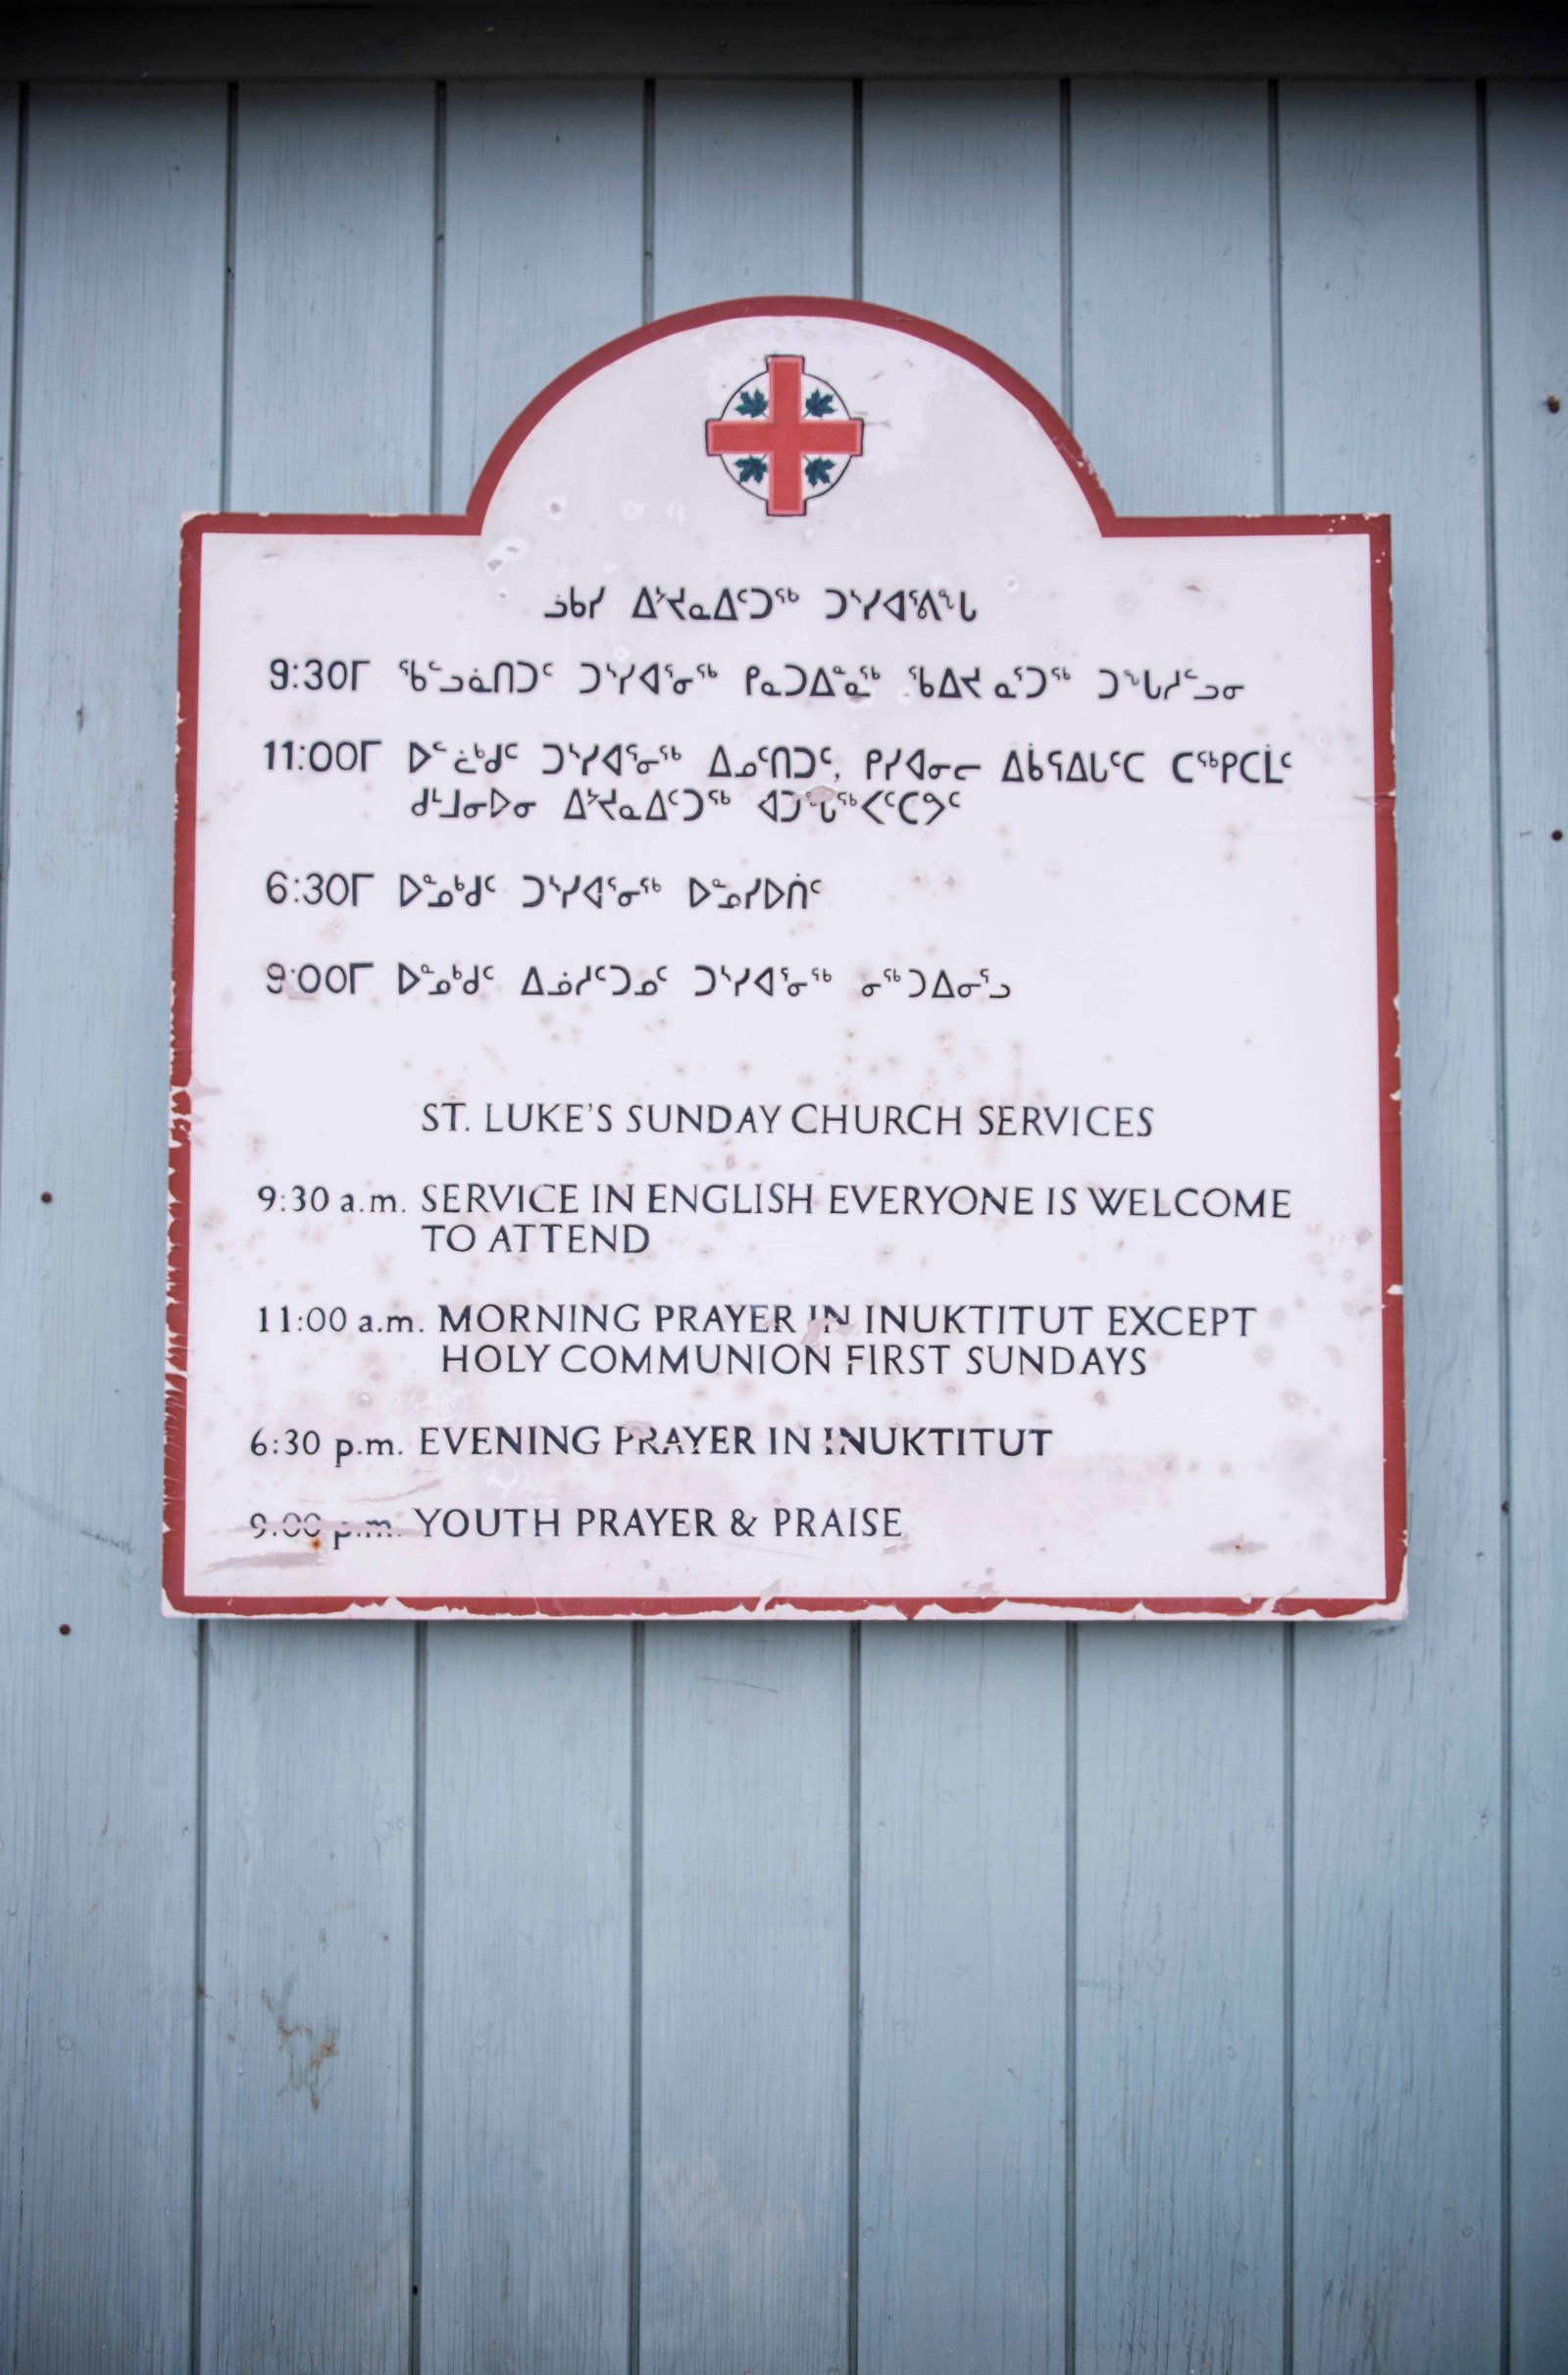 ᓘᑲᓯ ᐃᔾᔪᓇᐃᑦᑐᖅ ᑐᒃᓯᐊᕐᕕᖓ
9:30ᒥ ᖃᓪᓗᓈᑎᑐᑦ ᑐᒃᓯᐊᕐᓂᖅ ᑭᓇᑐᐃᓐᓇᖅ ᖃᐃᔪᓇᕐᑐᖅ ᑐᙵᓱᓪᓗᓂ
11:00ᒥ ᐅᓪᓛᒃᑯᑦ ᑐᒃᓯᐊᕐᓂᖅ ᐃᓄᑦᑎᑐᑦ, ᑭᓯᐊᓂᓕ ᐃᑳᕋᐃᒐᑦᑕ ᑕᖅᑭᑕᒫᑦ
ᑯᒻᒧᓂᐅᓂ ᐃᔾᔪᓇᐃᑦᑐᖅ ᐊᑐᖓᖅᐸᑦᑕᕗᑦ
6:30ᒥ ᐅᓐᓄᒃᑯᑦ ᑐᒃᓯᐊᕐᓂᖅ ᐅᓐᓄᓯᐅᑏᑦ
9:00ᒥ ᐅᓐᓄᒃᑯᑦ ᐃᓅᓱᑦᑐᓄᑦ ᑐᒃᓯᐊᕐᓂᖅ ᓂᖅᑐᐃᓂᕐᓗ
ST. LUKE'S SUNDAY CHURCH SERVICES
9:30 a.m. SERVICE IN ENGLISH EVERYONE IS WELCOME
TO ATTEND
11:00 a.m. MORNING PRAYER IN INUKTITUT EXCEPT
HOLY COMMUNION FIRST SUNDAYS
6:30 p.m. EVENING PRAYER IN INUKTITUT
9:00 p.m. YOUTH PRAYER & PRAISE